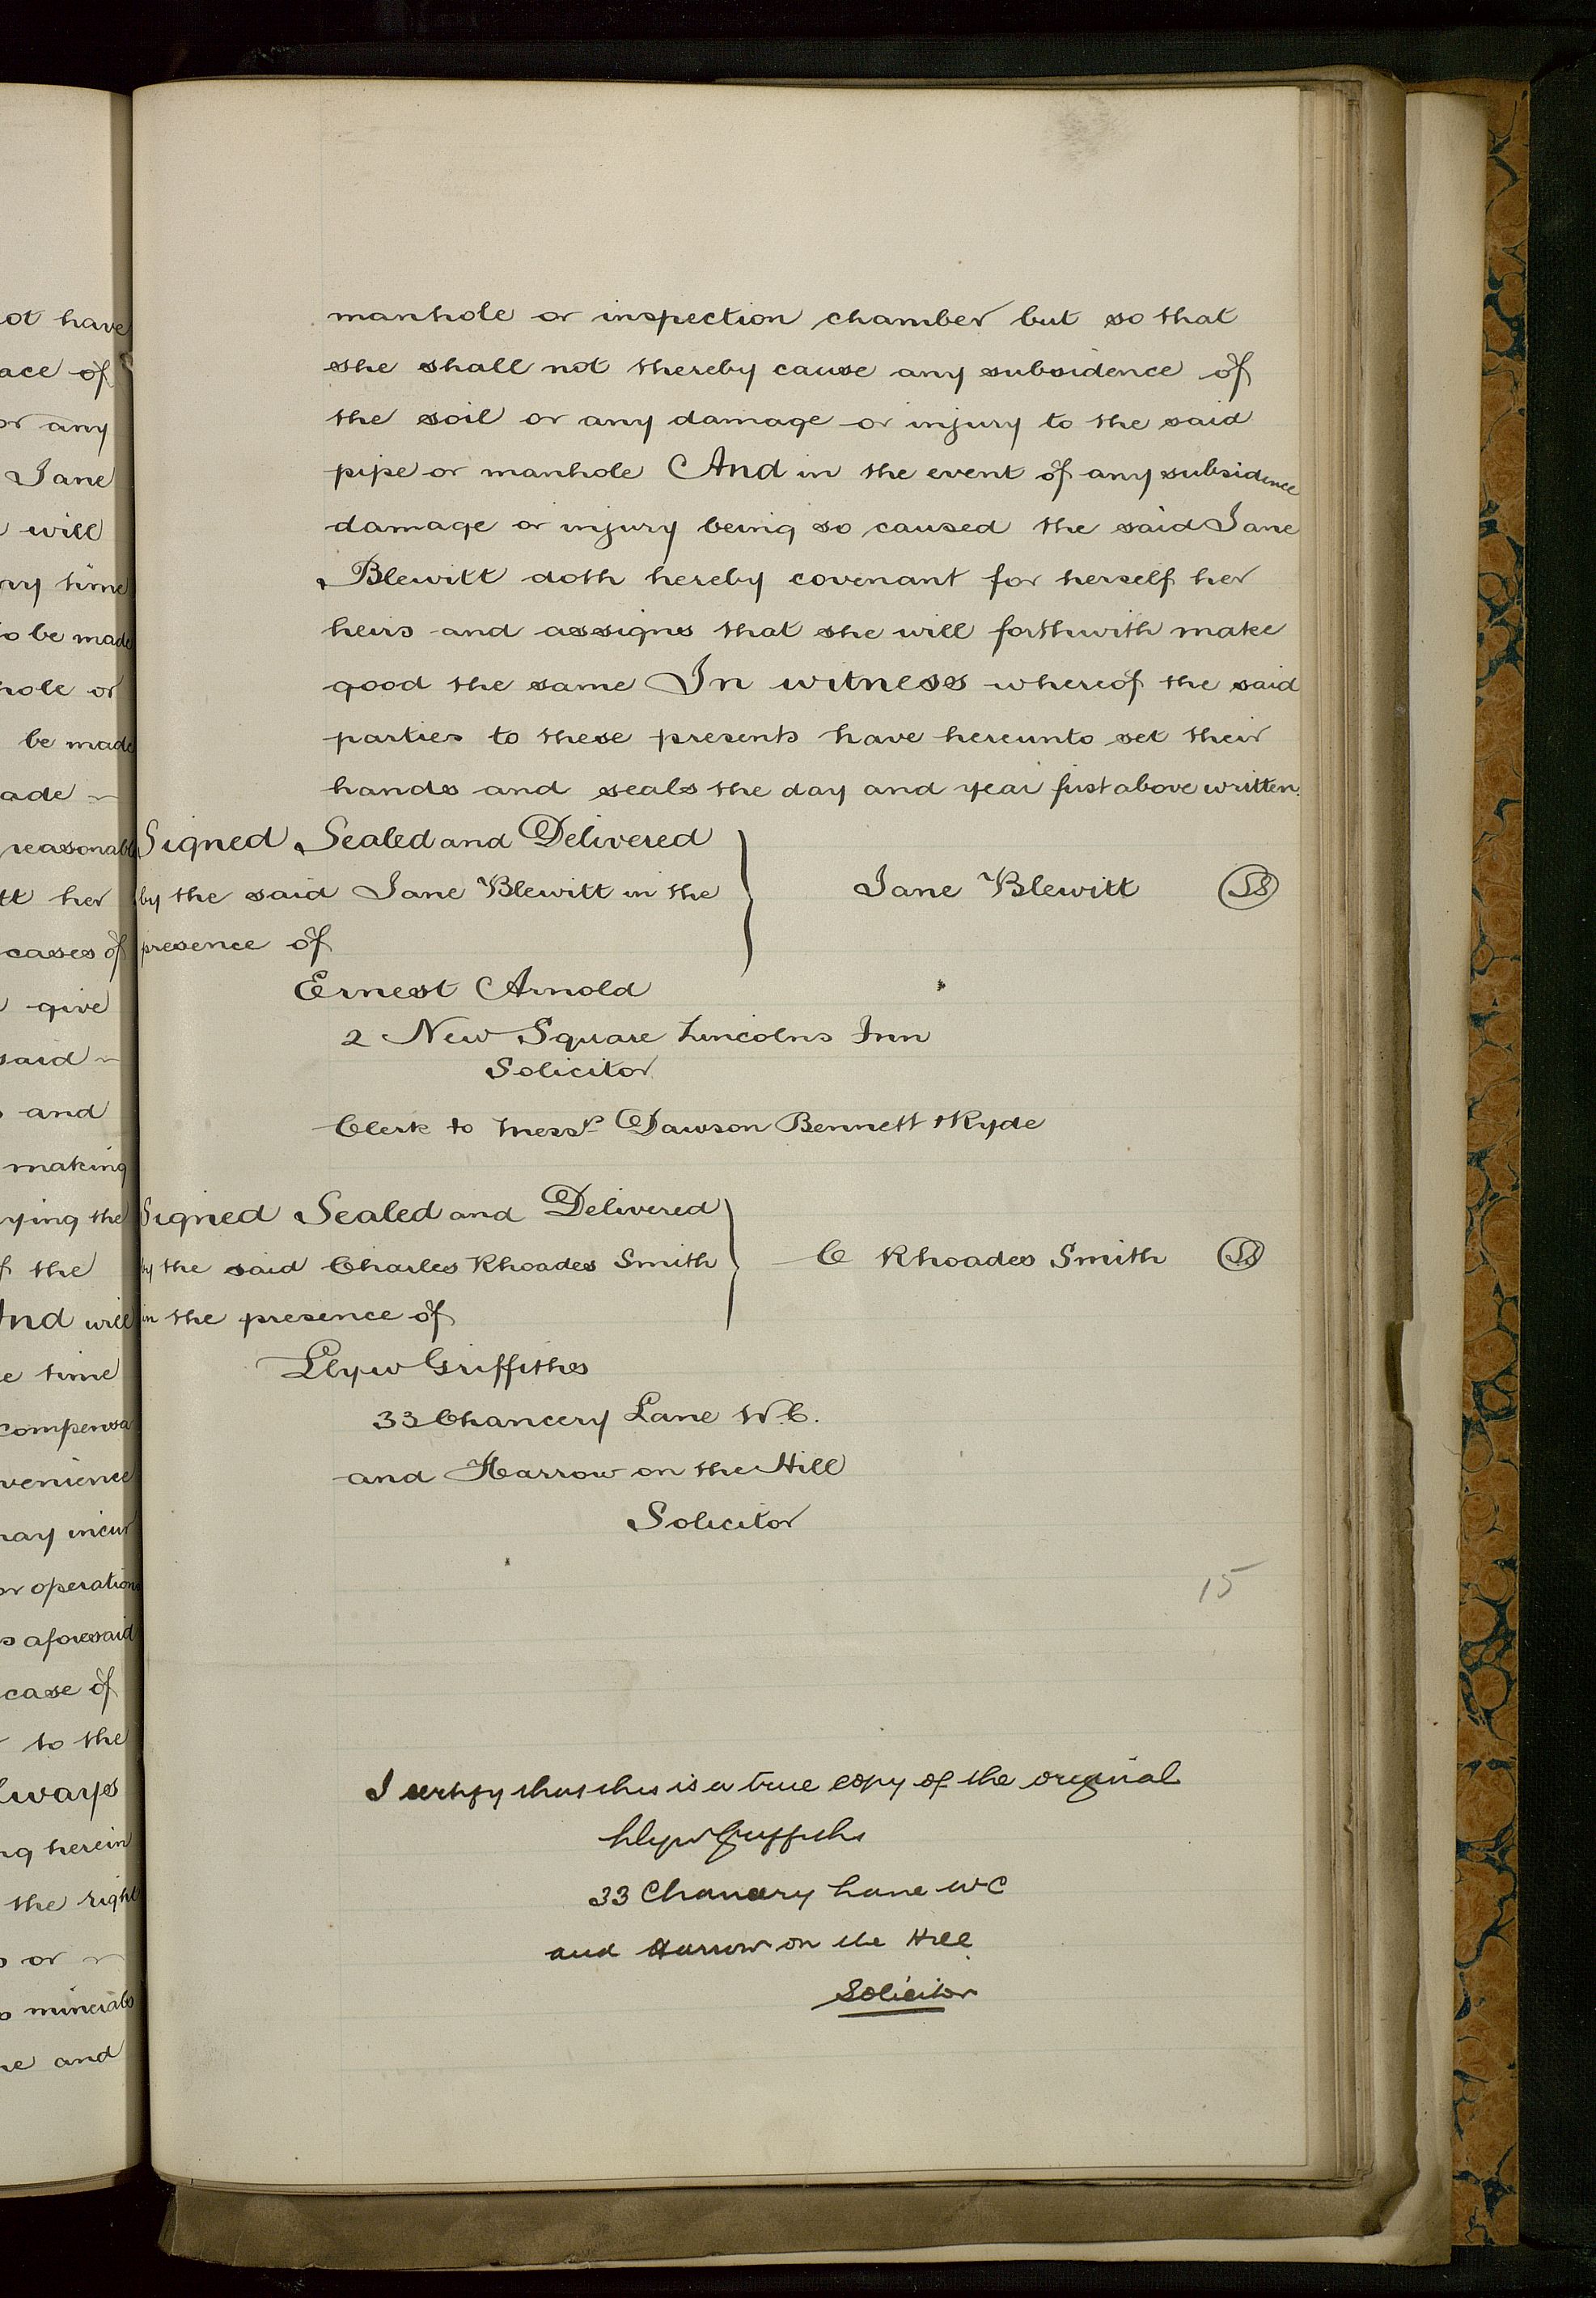 ot have
ace of
or any
Jane
will
ny time
to be made
hole or
be made
ade
reasonabl
tt her
cases of
give
said
and
making
ying the
f the
And will
e time
compensa
venience
may incur
or operations
s aforesaid
case of
to the
lways
ng herein
the right
s or
s minerals
re and
manhole or inspection chamber but so that
she shall not thereby cause any subsidence of
the soil or any damage or injury to the said
pipe or manhole And in the event of any subsidence
damage or injury being so caused the said Jane
Blewitt doth hereby covenant for herself her
heirs and assigns that she will forthwith make
good the same In witness whereof the said
parties to these presents have hereunto set their
hands and seals the day and year first above written.
Signed Sealed and Delivered
by the said Jane Blewitt in the
presence of
Jane Blewitt LS
Ernest Arnold
2 New Square Lincolns Inn
Solicitor
Clerk to Messrs Dawson Bennett & Ryde
Signed Sealed and Delivered
by the said Charles Rhoades Smith
in the presence of
C Rhoades Smith LS
Llyw Griffiths
33 Chancery Lane W.C.
and Harrow on the Hill
Solicitor
15
I certify that this is a true copy of the original
Llyw Griffiths
33 Chancery Lane WC
and Harrow on the Hill
Solicitor